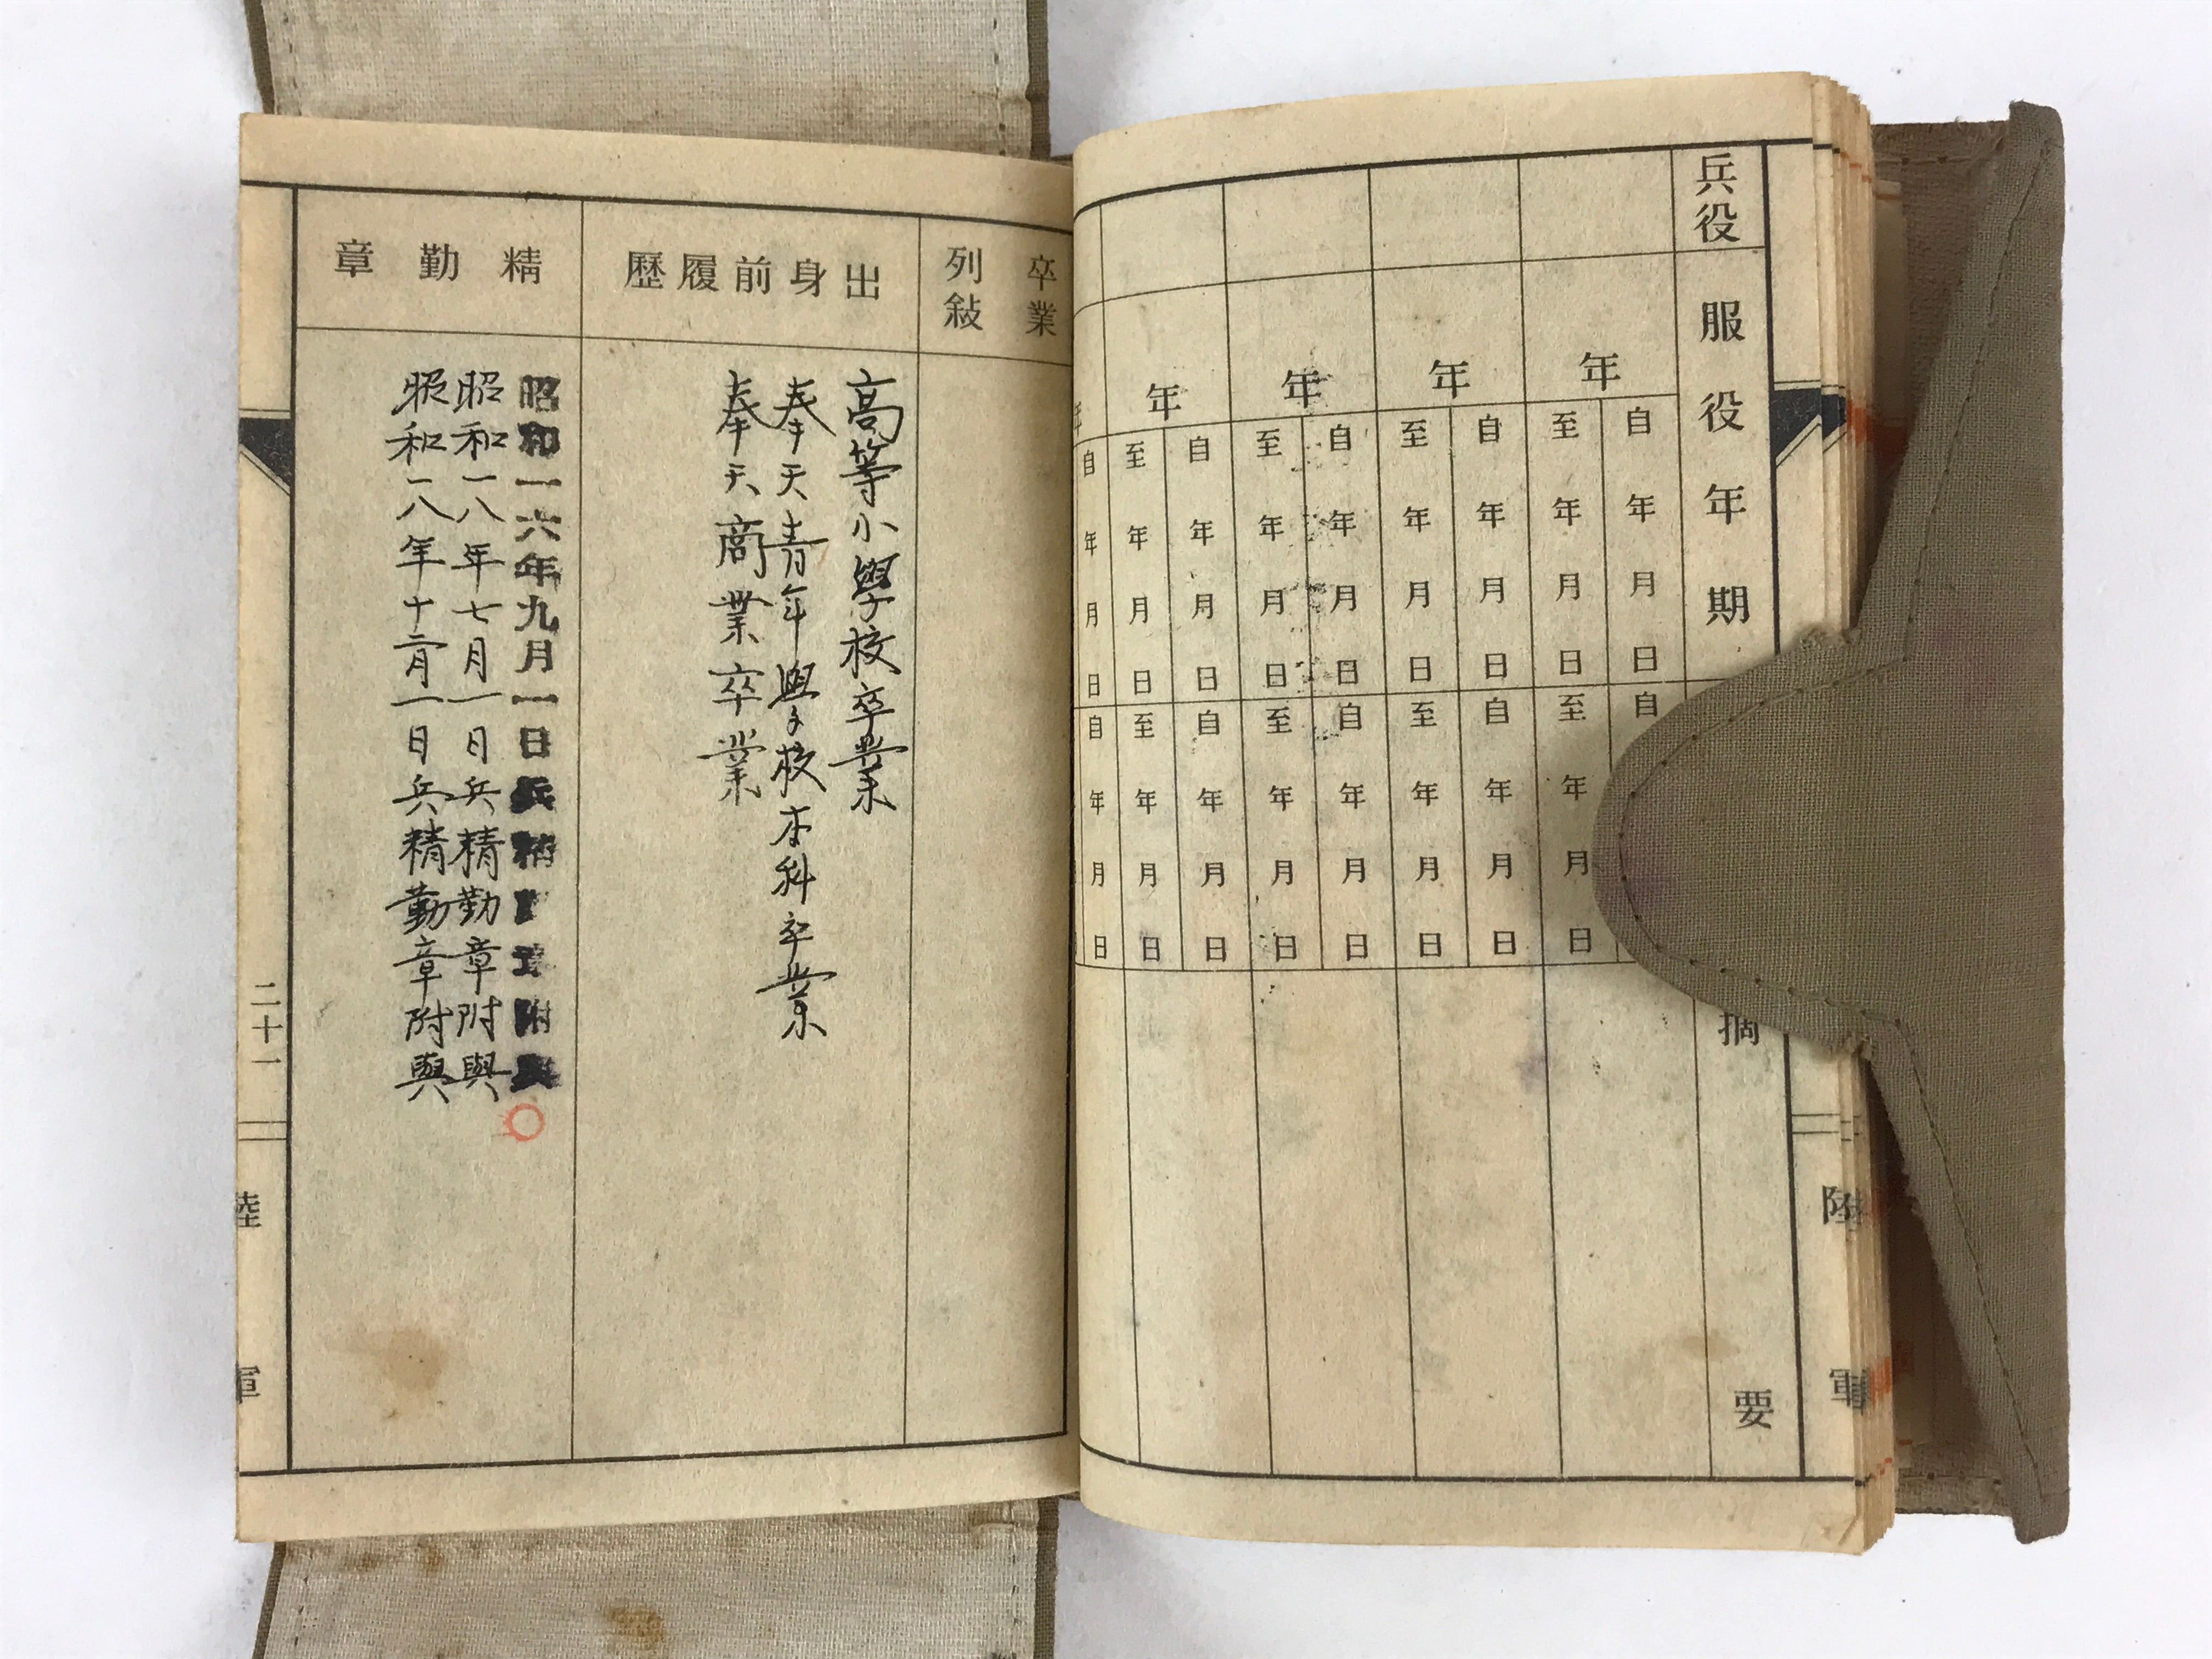 兵役
服役年期
摘要
年
自年月日
至年月日
自
至年月日
年
自年月日
至年月日
自年月日
至年月日
年
自年月日
至年月日
自年月日
至年月日
年
自年月日
至年月日
自年月日
至年月日
年
自年月日
自年月日
陸軍
卒業
列敍
出身前履歷
高等小學校卒業
奉天青年學校本科卒業
奉天商業卒業
精勤章
昭和一六年九月一日兵精勤章附與
昭和一八年七月一日兵精勤章附與
昭和一八年十二月一日兵精勤章附與
二十一
陸軍